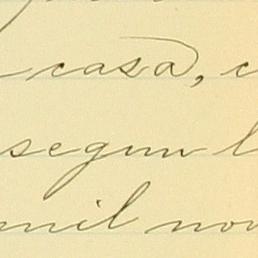 casa, c
segun l
mil nov